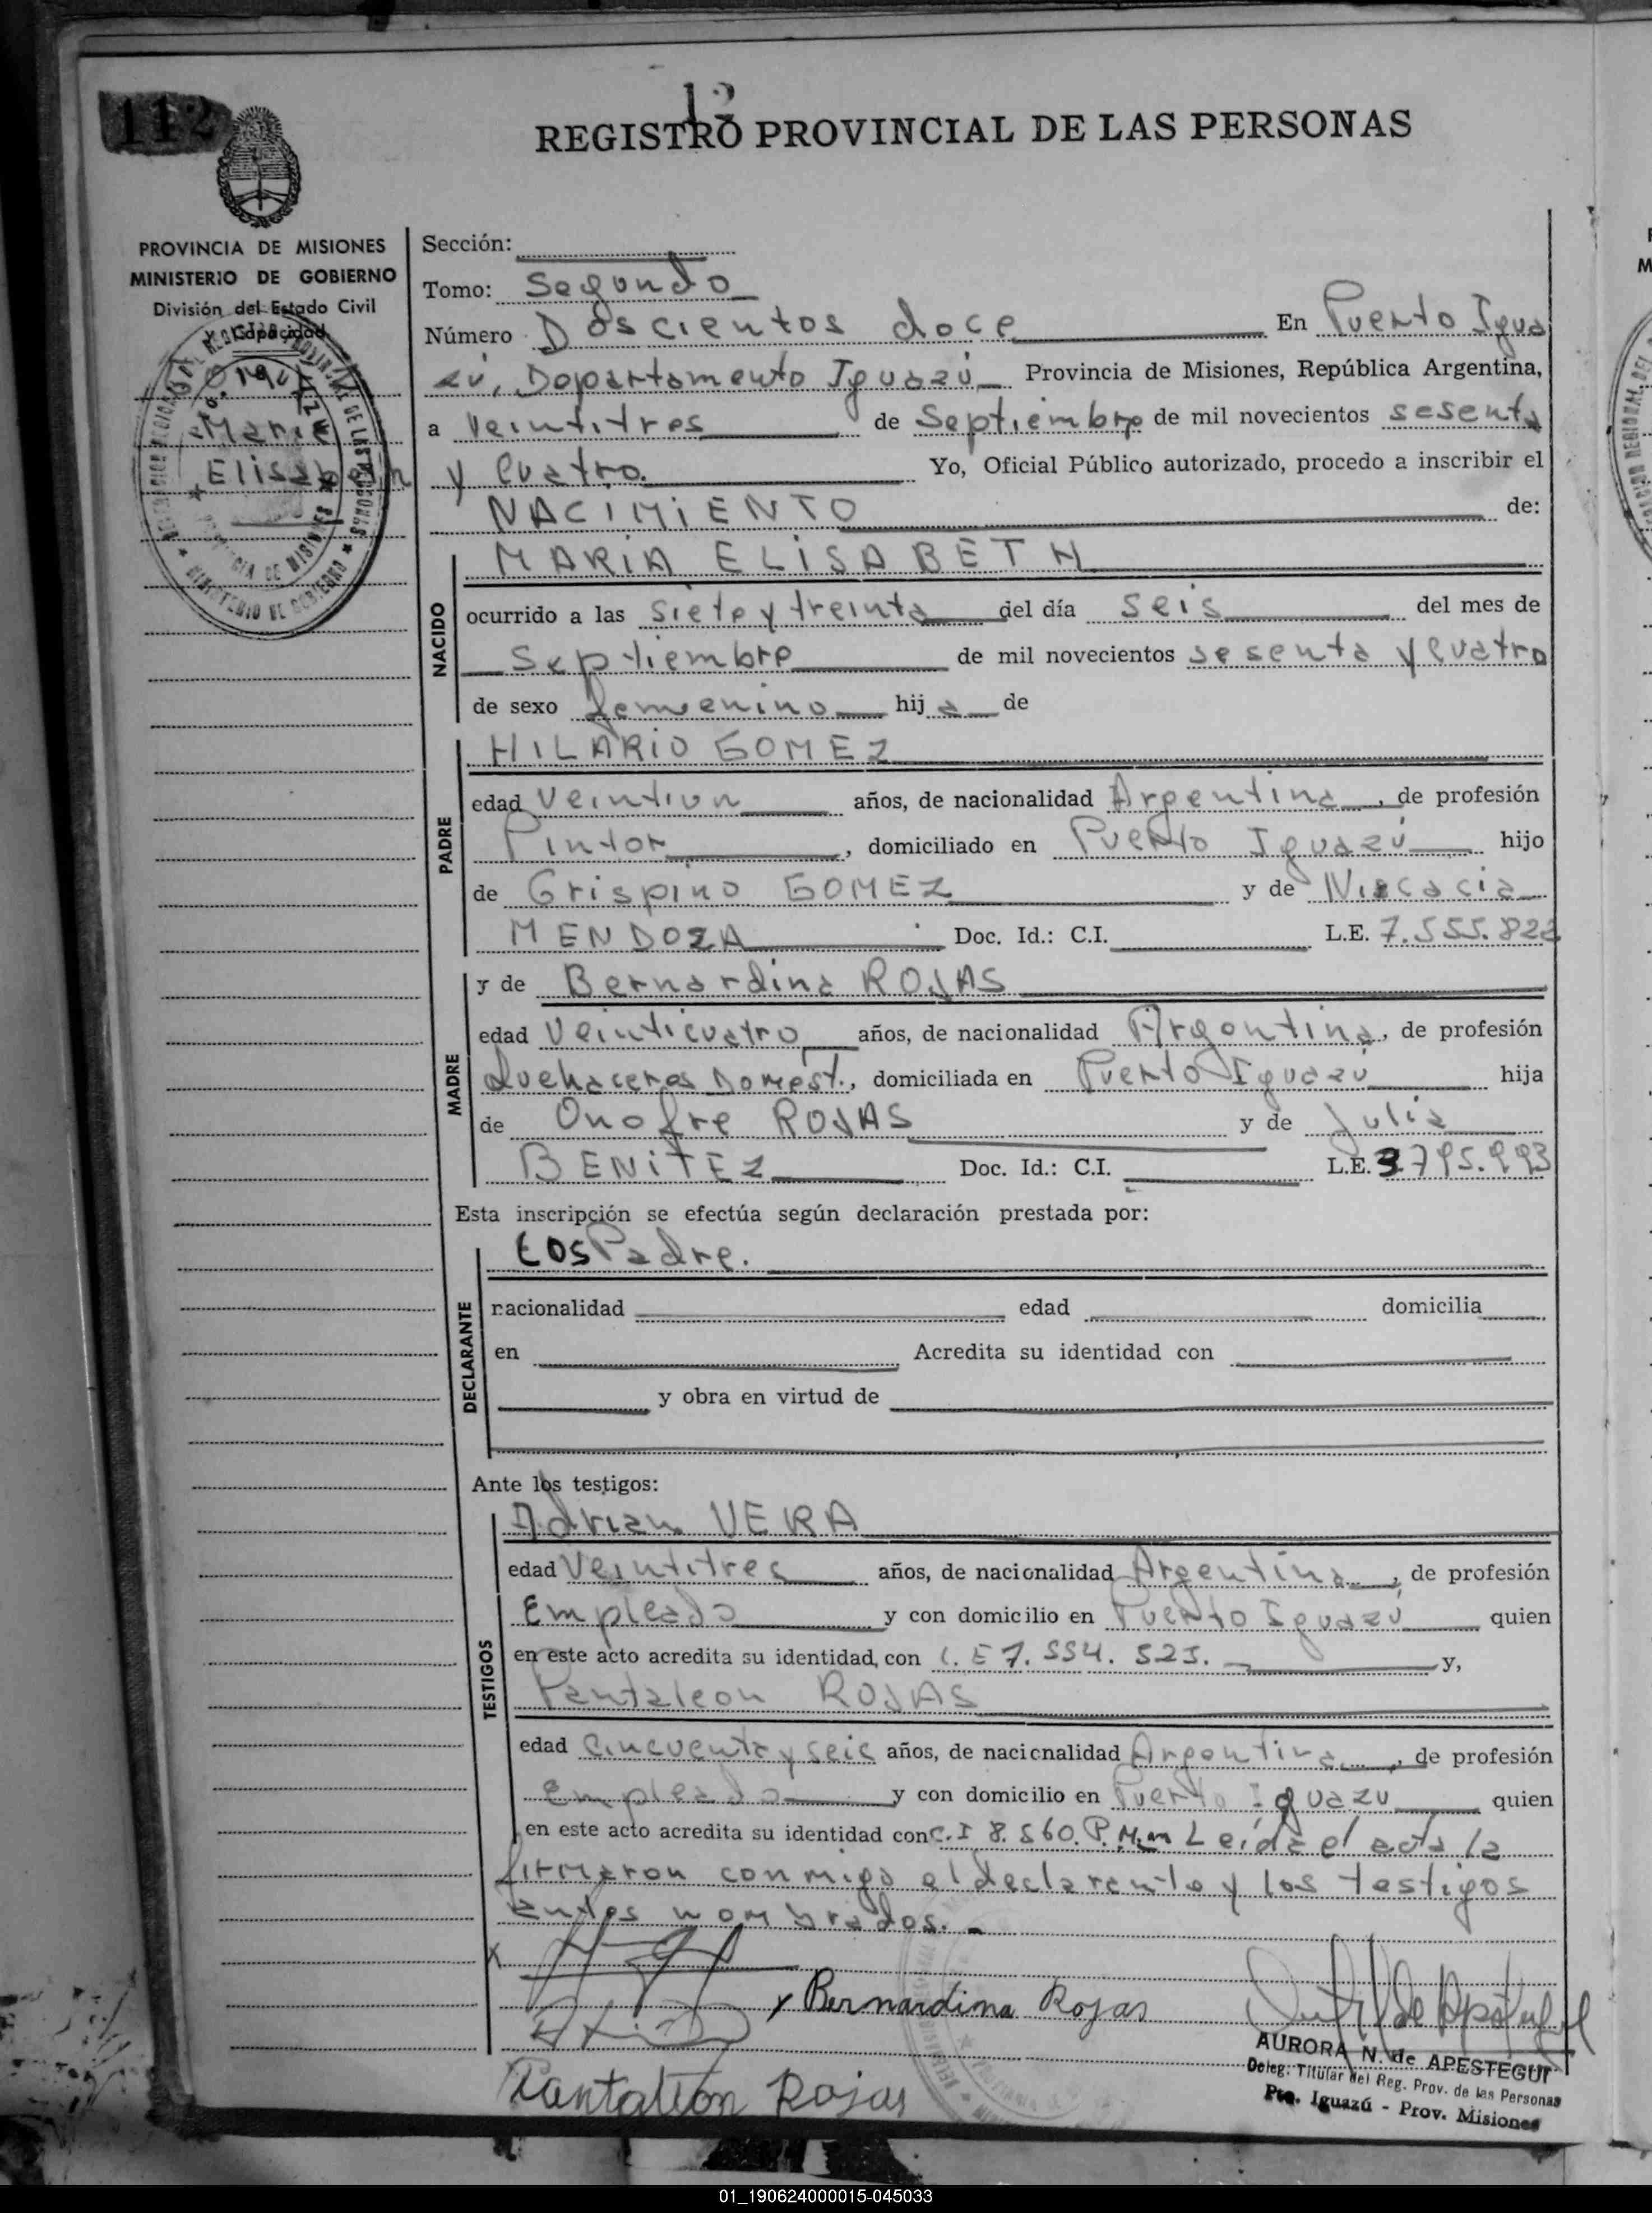 112
12
REGISTRO PROVINCIAL DE LAS PERSONAS
PROVINCIA DE MISIONES
MINISTERIO DE GOBIERNO
División del Estado Civil
y Capacidad
Maria
Elisabeth
Sección:
Tomo: Segundo
Número Doscientos doce En Puerto Igua
zú, Departamento Iguazú Provincia de Misiones, República Argentina,
a veintitres de Septiembre de mil novecientos sesenta
y cuatro. Yo, Oficial Público autorizado, procedo a inscribir el
NACIMIENTO de:
NACIDO
MARIA ELISABETH
ocurrido a las siete y treinta del día seis del mes de
Septiembre de mil novecientos sesenta y cuatro
de sexo femenino hij a de
PADRE
HILARIO GOMEZ
edad veintiun años, de nacionalidad Argentina, de profesión
Pintor, domiciliado en Puerto Iguazú hijo
de Crispino GOMEZ y de
MENDOZA Doc. Id.: C.I. L.E. 7.555.822
MADRE
y de Bernardina ROJAS
edad veinticuatro años, de nacionalidad Argentina, de profesión
Quehaceres Domést., domiciliada en Puerto Iguazú hija
de Onofre ROJAS y de Julia
BENITEZ Doc. Id.: C.I. L.E. 3.795.993
Esta inscripción se efectúa según declaración prestada por:
DECLARANTE
Los Padre.
nacionalidad edad domicilia
en Acredita su identidad con
y obra en virtud de
Ante los testigos:
TESTIGOS
Adrian VERA
edad veintitres años, de nacionalidad Argentina, de profesión
Empleado y con domicilio en Puerto Iguazú quien
en este acto acredita su identidad con L.E 7.554.523. y,
Pantaleon ROJAS
edad cincuenta y seis años, de nacionalidad Argentina, de profesión
empleado y con domicilio en Puerto Iguazu quien
en este acto acredita su identidad con C.I 8.560. P. Leída el acta la
firmaron conmigo el declarante y los testigos
antes nombrados.
x Bernardina Rojas
Pantalion Rojas
AURORA N. de APESTEGUI
Deleg. Titular del Reg. Prov. de las Personas
Pto. Iguazú - Prov. Misiones
01_190624000015-045033